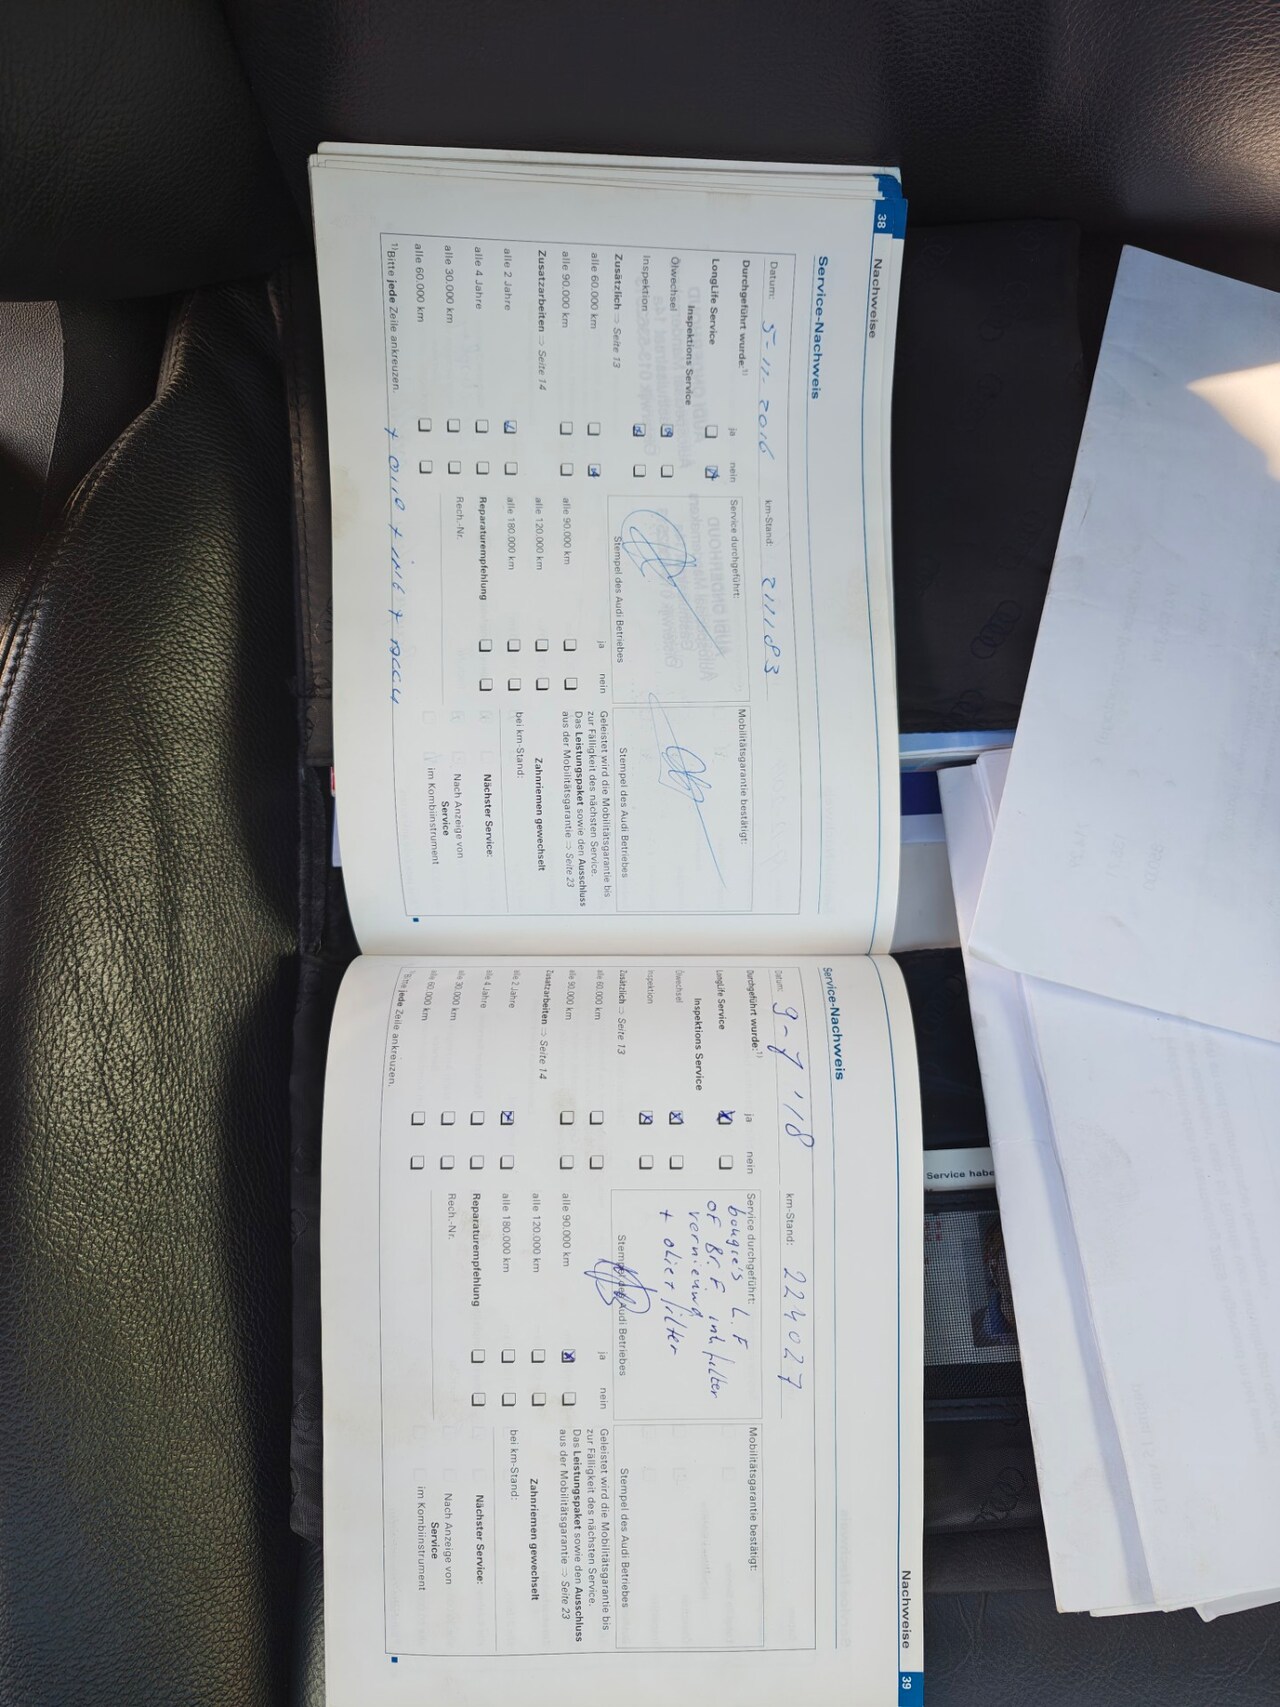 38
Nachweise
Service-Nachweis
Datum: 5-11-2016 km-Stand: 211183
Durchgeführt wurde:¹⁾ ja nein
LongLife Service
Inspektions Service
Ölwechsel
Inspektion
Zusätzlich ⇒ Seite 13
alle 60.000 km
alle 90.000 km
Zusatzarbeiten ⇒ Seite 14
alle 2 Jahre
alle 4 Jahre
alle 30.000 km
alle 60.000 km
¹⁾ Bitte jede Zeile ankreuzen.
Service durchgeführt:
Stempel des Audi Betriebes
ja nein
alle 90.000 km
alle 120.000 km
alle 180.000 km
Reparaturempfehlung
Rech.-Nr.
Mobilitätsgarantie bestätigt:
Stempel des Audi Betriebes
Geleistet wird die Mobilitätsgarantie bis
zur Fälligkeit des nächsten Service.
Das Leistungspaket sowie den Ausschluss
aus der Mobilitätsgarantie ⇒ Seite 23
Zahnriemen gewechselt
bei km-Stand:
Nächster Service:
Nach Anzeige von
Service
im Kombiinstrument
Nachweise
39
Service-Nachweis
Datum: 9-7 '18 km-Stand: 224027
Durchgeführt wurde:¹⁾ ja nein
LongLife Service
Inspektions Service
Ölwechsel
Inspektion
Zusätzlich ⇒ Seite 13
alle 60.000 km
alle 90.000 km
Zusatzarbeiten ⇒ Seite 14
alle 2 Jahre
alle 4 Jahre
alle 30.000 km
alle 60.000 km
¹⁾ Bitte jede Zeile ankreuzen.
Service durchgeführt:
bougie's L.F
OF Br.F. filter
vernieuwd
+ filter
Stempel des Audi Betriebes
ja nein
alle 90.000 km
alle 120.000 km
alle 180.000 km
Reparaturempfehlung
Rech.-Nr.
Mobilitätsgarantie bestätigt:
Stempel des Audi Betriebes
Geleistet wird die Mobilitätsgarantie bis
zur Fälligkeit des nächsten Service.
Das Leistungspaket sowie den Ausschluss
aus der Mobilitätsgarantie ⇒ Seite 23
Zahnriemen gewechselt
bei km-Stand:
Nächster Service:
Nach Anzeige von
Service
im Kombiinstrument
Service habe